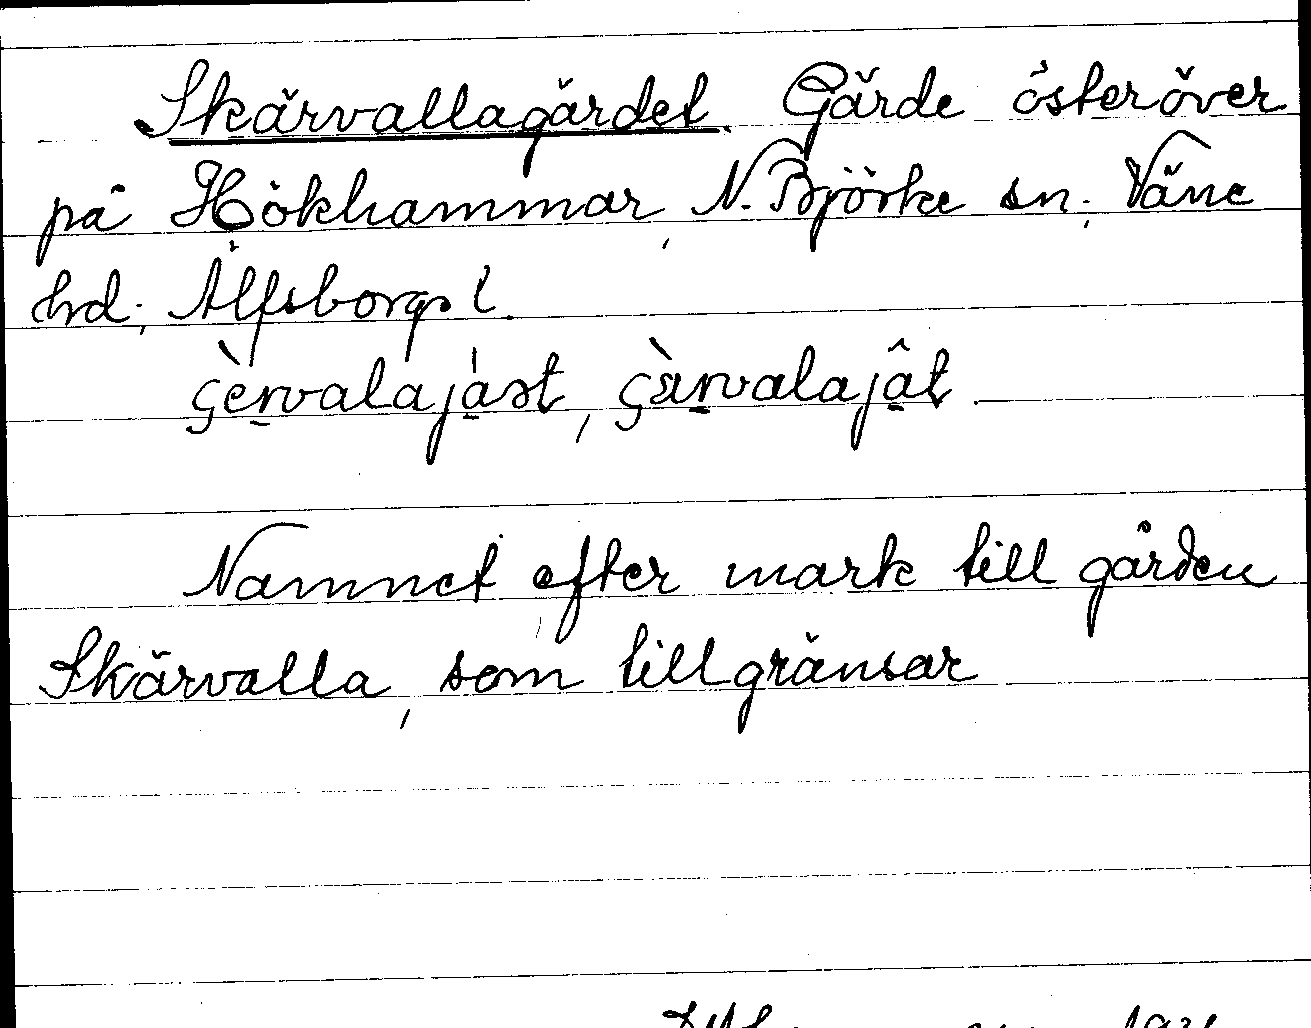 Skärvallagärdet. Gärde österöver
på Hökhammar, N. Björke sn; Väne
hd; Älfsborgs l.
çèrvalajást, çàrvalajât
Namnet efter mark till gården
Skärvalla, som tillgränsar